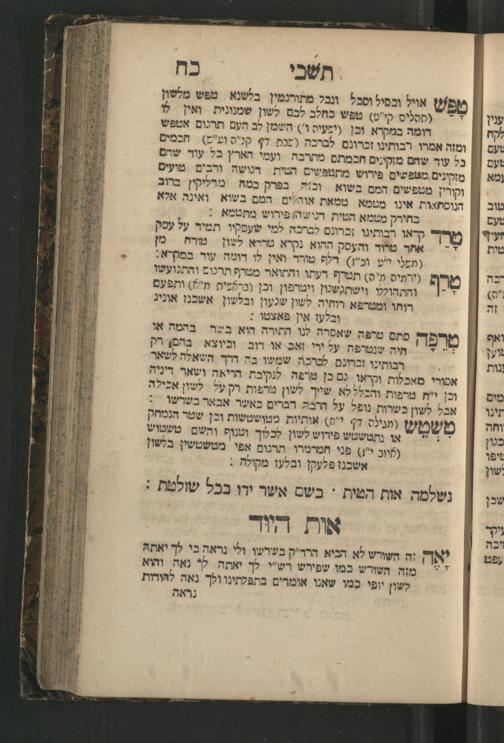 תשבי כח
טפש אויל וכסיל וסכל ונבל מתורגמין בלשנא טפש מלשון
(תהלים קי״ט) טפש כחלב לבם לשון שמנונית ואין לו
דומה במקרא וכן (ישעיה ו׳) השמן לב העם תרגום אטפש
ומזה אמרו רבותינו זכרונם לברכה (שבת דף קנ״ב) חכמים
כל עוד שהם מזקינים חכמתם מתרבה ועמי הארץ כל עוד שהם
מזקינים מטפשים פירוש מתטפשים הטית דגושה ורבים טועים
וקורין מטפשים המם בשוא וכזה בפרק במה מדליקין ברוב
הנוסחאות אינו מטמא טמאת אוהלים המם בשוא ואינה אלא
בחירק מטמא הטית דגושה פירוש מתטמא :
טרד קראו רבותינו זכרונם לברכה למי שעסקיו תמיד על עסק
אחד טרוד והעסק ההוא נקרא טרדא לשון טורח מן
(משלי י״ט וכ״ז) דלף טורד ואין לו דומה עוד במקרא :
טרף (ירמיה מ״ה) תטרף דעתו והתואר מטרף תרגום והתגועשו
והתהוללו וישתגשון ויטרפון וכן (בראשית מ״א) ותפעם
רוחו ומטרפא רוחיה לשון שגעון ובלשון אשכנז אוניג
ובלעז אין פאצטו :
טרפה סתם טרפה שאסרה לנו התורה הוא בשר בהמה או
חיה שנטרפה על ידי זאב או דוב וכיוצא בהם רק
רבותינו זכרונם לברכה שמשו בה דרך השאלה לשאר
אסורי מאכלות וקראו גם כן טרפה לנקיבת הריאה ושאר דיניה
וכן י״ח טרפות והכלל לא שייך לשון טרפות רק על לשון אכילה
אבל לשון כשרות נופל על הרבה דברים כאשר אבאר בשרשו :
טשטש (מגילה דף י״ח) אותיות מטושטשות וכן שטר הנמחק
או נתטשטש פירוש לשון לכלוך וטנוף והשם טשטוש
(איוב י״ו) פני חמרמרו תרגום אפי מטשטשין בלשון
אשכנז פלעקן ובלעז מקולה :
נשלמה אות הטית . בשם אשר ידו בכל שולטת :
אות היוד
יאה זה השורש לא הביא הרד״ק בשרשיו ולי נראה כי לך יאתה
מזה השורש כמו שפירש רש״י לך יאתה לך נאה והוא
לשון יופי כמו שאנו אומרים בתפלתינו ולך נאה להודות
נראה